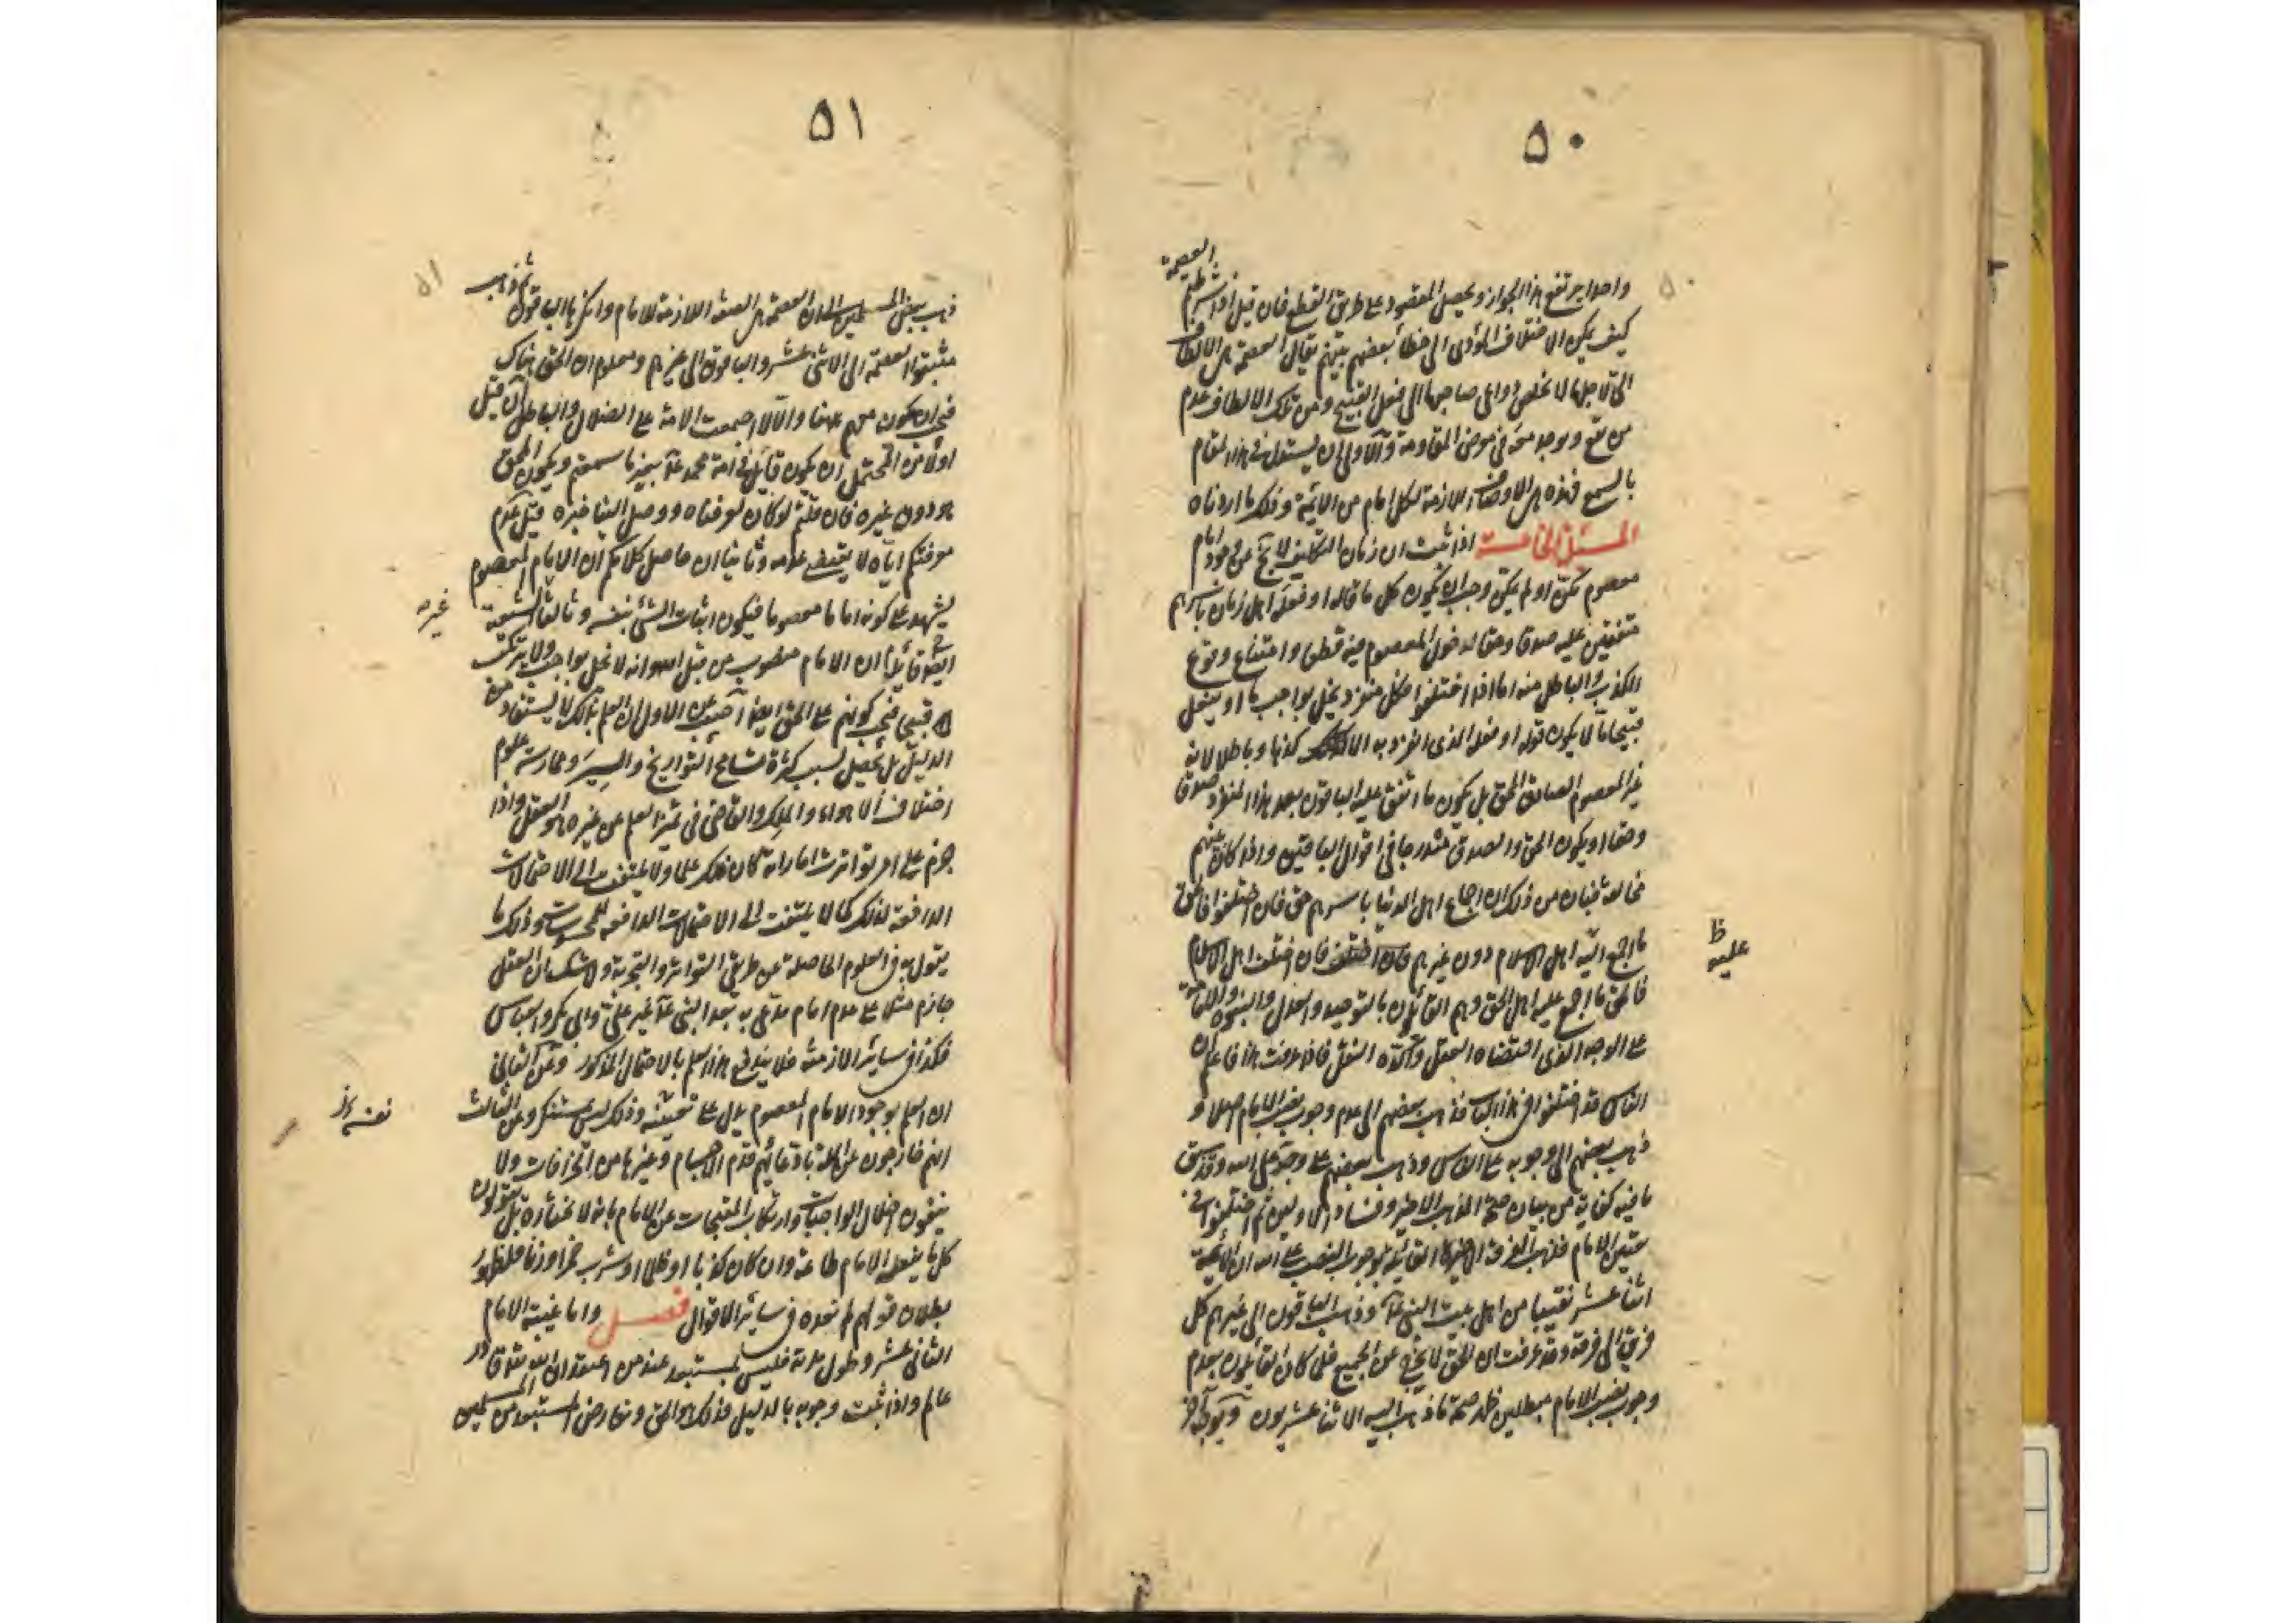 ٥٠
العصمة
واحدا يرتفع هذا الجواز ويحصل المقصود على طريق القطع فان قيل اذا شرطتم
كيف يمكن الاختلاف المؤدى الى خطأ بعضهم بينهم يقال العصمة هى الالطاف
التى لاجلها لا تخلص دواعى صاحبها الى فعل القبيح ومن تلك الالطاف عدم
من يقع ويوجد معه فى معرض المقاومة والاولى ان يستدل فى هذا المقام
بالسمع فهذه هى الاوصاف اللازمة لكل امام من الائمة وذلك ما اردناه
المسئلة الخامسة اذا ثبت ان زمان التكليف لا يخ عن وجود امام
معصوم تمكن او لم يتمكن وجب ان يكون كل ما قاله او فعله اهل زمان باسرهم
متفقين عليه صدقا وحقا لدخول المعصوم فيه قطعا وامتناع وقوع
الكذب والباطل منه اما اذا اختلفوا فكل منفرد يخل بواجب ما او يفعل
قبيحا ما لا يكون قوله او فعله الذى انفرد به الا كذبا وباطلا لانه
غير المعصوم الصادق المحق بل يكون ما اتفق عليه الباقون بعد هذا المنفرد صدقا
وحقا او يكون الحق والصدق مندرجا فى اقوال الباقين واذا كان بينهم
مخالفة فبان من ذلك ان اجماع اهل الدنيا باسرهم حق فان اختلفوا فالحق
ما اجمع اليه اهل الاسلام دون غيرهم فان اختلف اهل الاسلام
ظ
عليه
فالحق ما اجمع عليه اهل الحق وهم القائلون بالتوحيد والعدل والنبوة والامامة
على الوجه الذى اقتضاه العقل واكده النقل فاذا عرفت هذا فاعلم ان
الناس قد اختلفوا فى هذا الباب فذهب بعضهم الى عدم وجوب نصب الامام اصلا و
ذهب بعضهم الى وجوبه على الناس وذهب بعضهم على وجوبه على الله وقد سبق
ما فيه كفاية من بيان صحة المذهب الاخير وفساد الاولين ثم اختلفوا فى
تعيين الامام فذهب الفرقة الاخيرة القائلة بوجوب النصب على الله ان الائمة
اثنا عشر نقيبا من اهل بيت النبى عآ وذهب الباقون الى غيرهم كل
فريق الى فرقة وقد عرفت ان الحق لا يخرج عن الجميع فلما كان القائلون بعدم
وجوب نصب الامام مبطلين ظهر صحة ما ذهب اليه الاثنا عشريون وبوجه آخر
٥١
ذهب بعض المسلمين الى ان العصمة هى الصفة اللازمة للامام وانكرها الباقون ثم ذهب
مثبتوا العصمة الى الاثنى عشر والباقون الى غيرهم ومعلوم ان الحق هناك
فيجب ان يكون معهم ههنا والا لاجتمعت الامة على الضلال والباطل فان قيل
اولا من المحتمل ان يكون قائل فى امة محمد عآ بغير ما سمعتم ويكون المحق
هو دون غيره فان قلتم لو كان لعرفناه ووصل الينا خبره قيل عدم
معرفتكم اياه لا يقتضى عدمه وثانيا ان حاصل كلامكم ان الامام المعصوم
يشهد على كونه اماما معصوما فيكون اثبات الشئ بنفسه وثالثا الشيعة
غيره
ايضا قائلة ان الامام منصوب من قبل الله وانه لا يخل بواجب ولا يرتكب
قبيحا فيجب كونهم على الحق ايضا اجيب عن الاول ان العلم بذلك لا يستفاد من
الدليل بل يحصل بسبب كثرة تسامع التواريخ والسير وممارسة علوم
اختلاف الاهواء والملل والقاضى فى تميز العلم من غيره هو العقل واذا
جزم على امر بتواتر اماراته كان ذلك علما ولا يلتفت الى الاحتمالات
الدافعة لذلك كما لا يلتفت الى الاحتمالات الدافعة للمحسوسات وذلك ما
يقول به فى العلوم الحاصلة من طريق التواتر والتجربة ولا شك ان العقل
جازم مثلا على عدم امام مدعى به بعد النبى عآ غير على وابى بكر والعباس
فكذا فى سائر الازمنة فلا يندفع هذا العلم بالاحتمال المذكور وعن الثانى
ان العلم بوجود الامام المعصوم يدل على تعيينه وذلك ليس بمستنكر وعن الثالث
انهم خارجون عن الملة بادعائهم قدم الاجسام وغيرها من الخرافات ولا
ينفون اخلال الواجبات وارتكاب المقبحات عن الامام بانه لا يختاره بل يقولون
كل ما يفعله الامام طاعة وان كان كذبا او ظلما او شرب خمر او زنا فلظهور
بطلان قولهم لم نعده فى سائر الاقوال فصل واما غيبة الامام
الثانى عشر وطول مدته فليس بمستبعد عند من اعتقد ان الله تعالى قادر
عالم واذا ثبت وجوبه بالدليل فذلك هو الحق وتعارض المستبعد من المسلمين